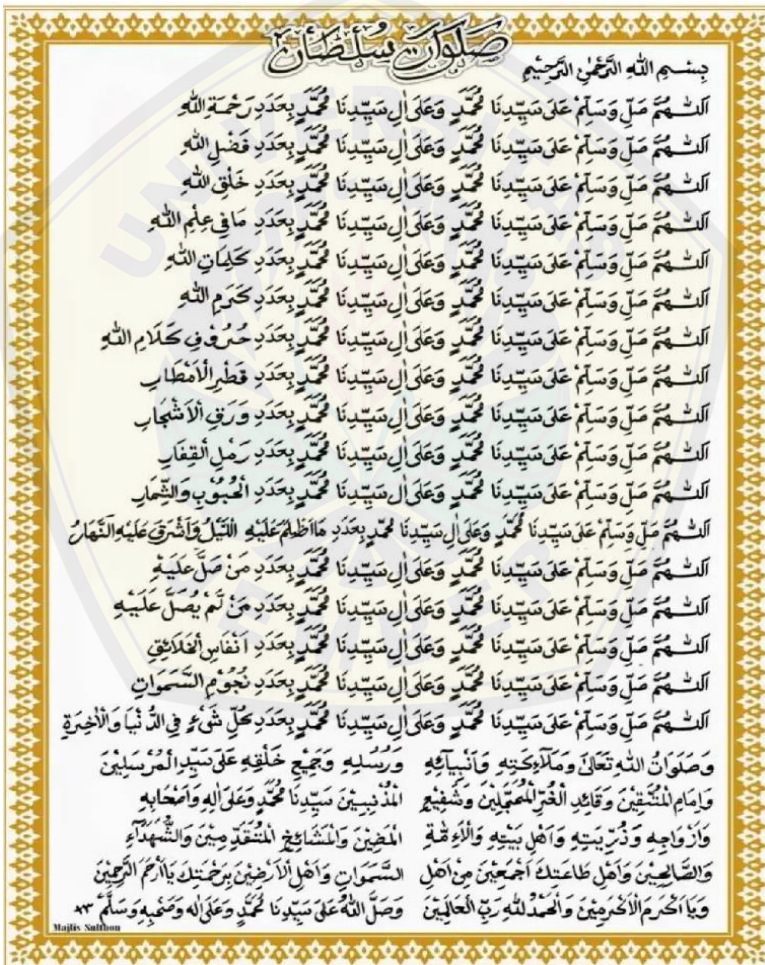 صَلَوَاتْ سُلْطَانْ
بِسْــمِ اللهِ الرَّحْمٰنِ الرَّحِيْمِ
اَللّٰــهُمَّ صَلِّ وَسَلِّمْ عَلَى سَيِّدِنَا مُحَمَّدٍ وَعَلَى اٰلِ سَيِّدِنَا مُحَمَّدٍ بِعَدَدِ رَحْمَةِ اللهِ
اَللّٰــهُمَّ صَلِّ وَسَلِّمْ عَلَى سَيِّدِنَا مُحَمَّدٍ وَعَلَى اٰلِ سَيِّدِنَا مُحَمَّدٍ بِعَدَدِ فَضْلِ اللهِ
اَللّٰــهُمَّ صَلِّ وَسَلِّمْ عَلَى سَيِّدِنَا مُحَمَّدٍ وَعَلَى اٰلِ سَيِّدِنَا مُحَمَّدٍ بِعَدَدِ خَلْقِ اللهِ
اَللّٰــهُمَّ صَلِّ وَسَلِّمْ عَلَى سَيِّدِنَا مُحَمَّدٍ وَعَلَى اٰلِ سَيِّدِنَا مُحَمَّدٍ بِعَدَدِ مَا فِي عِلْمِ اللهِ
اَللّٰــهُمَّ صَلِّ وَسَلِّمْ عَلَى سَيِّدِنَا مُحَمَّدٍ وَعَلَى اٰلِ سَيِّدِنَا مُحَمَّدٍ بِعَدَدِ كَلِمَاتِ اللهِ
اَللّٰــهُمَّ صَلِّ وَسَلِّمْ عَلَى سَيِّدِنَا مُحَمَّدٍ وَعَلَى اٰلِ سَيِّدِنَا مُحَمَّدٍ بِعَدَدِ كَرَمِ اللهِ
اَللّٰــهُمَّ صَلِّ وَسَلِّمْ عَلَى سَيِّدِنَا مُحَمَّدٍ وَعَلَى اٰلِ سَيِّدِنَا مُحَمَّدٍ بِعَدَدِ حُرُوْفِ كَلَامِ اللهِ
اَللّٰــهُمَّ صَلِّ وَسَلِّمْ عَلَى سَيِّدِنَا مُحَمَّدٍ وَعَلَى اٰلِ سَيِّدِنَا مُحَمَّدٍ بِعَدَدِ قَطْرِ الْاَمْطَارِ
اَللّٰــهُمَّ صَلِّ وَسَلِّمْ عَلَى سَيِّدِنَا مُحَمَّدٍ وَعَلَى اٰلِ سَيِّدِنَا مُحَمَّدٍ بِعَدَدِ وَرَقِ الْاَشْجَارِ
اَللّٰــهُمَّ صَلِّ وَسَلِّمْ عَلَى سَيِّدِنَا مُحَمَّدٍ وَعَلَى اٰلِ سَيِّدِنَا مُحَمَّدٍ بِعَدَدِ رَمْلِ الْقِفَارِ
اَللّٰــهُمَّ صَلِّ وَسَلِّمْ عَلَى سَيِّدِنَا مُحَمَّدٍ وَعَلَى اٰلِ سَيِّدِنَا مُحَمَّدٍ بِعَدَدِ الْحُبُوْبِ وَالثِّمَارِ
اَللّٰــهُمَّ صَلِّ وَسَلِّمْ عَلَى سَيِّدِنَا مُحَمَّدٍ وَعَلَى اٰلِ سَيِّدِنَا مُحَمَّدٍ بِعَدَدِ مَااَظْلَمَ عَلَيْهِ اللَّيْلُ وَاَشْرَقَ عَلَيْهِ النَّهَارُ
اَللّٰــهُمَّ صَلِّ وَسَلِّمْ عَلَى سَيِّدِنَا مُحَمَّدٍ وَعَلَى اٰلِ سَيِّدِنَا مُحَمَّدٍ بِعَدَدِ مَنْ صَلَّ عَلَيْهِ
اَللّٰــهُمَّ صَلِّ وَسَلِّمْ عَلَى سَيِّدِنَا مُحَمَّدٍ وَعَلَى اٰلِ سَيِّدِنَا مُحَمَّدٍ بِعَدَدِ مَنْ لَمْ يُصَلَّ عَلَيْهِ
اَللّٰــهُمَّ صَلِّ وَسَلِّمْ عَلَى سَيِّدِنَا مُحَمَّدٍ وَعَلَى اٰلِ سَيِّدِنَا مُحَمَّدٍ بِعَدَدِ اَنْفَاسِ الْخَلَائِقِ
اَللّٰــهُمَّ صَلِّ وَسَلِّمْ عَلَى سَيِّدِنَا مُحَمَّدٍ وَعَلَى اٰلِ سَيِّدِنَا مُحَمَّدٍ بِعَدَدِ نُجُوْمِ السَّمَوَاتِ
اَللّٰــهُمَّ صَلِّ وَسَلِّمْ عَلَى سَيِّدِنَا مُحَمَّدٍ وَعَلَى اٰلِ سَيِّدِنَا مُحَمَّدٍ بِعَدَدِ كُلِّ شَيْءٍ فِي الدُّنْيَا وَالْاٰخِرَةِ
وَصَلَوَاتُ اللهِ تَعَالَى وَمَلَاءِكَتِهِ وَاَنْبِيَائِهِ وَرُسُلِهِ وَجَمِيْعِ خَلْقِهِ عَلَى سَيِّدِ الْمُرْسَلِيْنَ
وَاِمَامِ الْمُتَّقِيْنَ وَقَائِدِ الْغُرِّ الْمُحَجَّلِيْنَ وَشَفِيْعِ الْمُذْنِبِيْنَ سَيِّدِنَا مُحَمَّدٍ وَعَلَى اٰلِهِ وَاَصْحَابِهِ
وَاَزْوَاجِهِ وَذُرِّيَتِهِ وَاَهْلِ بَيْتِهِ وَالْاَءِمَّةِ الْمَضِيْنَ وَالْمَشَائِخِ الْمُتَقَدِّمِيْنَ وَالشُّهَدَاءِ
وَالصَّالِحِيْنَ وَاَهْلِ طَاعَتِكَ اَجْمَعِيْنَ مِنْ اَهْلِ السَّمَوَاتِ وَاَهْلِ الْاَرْضِيْنَ بِرَحْمَتِكَ يَااَرْحَمَ الرَّحِمِيْنَ
وَيَا اَكْرَمَ الْاَكْرَمِيْنَ وَالْحَمْدُ لِلّٰهِ رَبِّ الْعَالَمِيْنَ وَصَلَّ اللهُ عَلَى سَيِّدِنَا مُحَمَّدٍ وَعَلَى اٰلِه وَصَحْبِهِ وَسَلَّمَ ٨٣
Majlis Sulthon
UNIVERSITAS
JEMBER